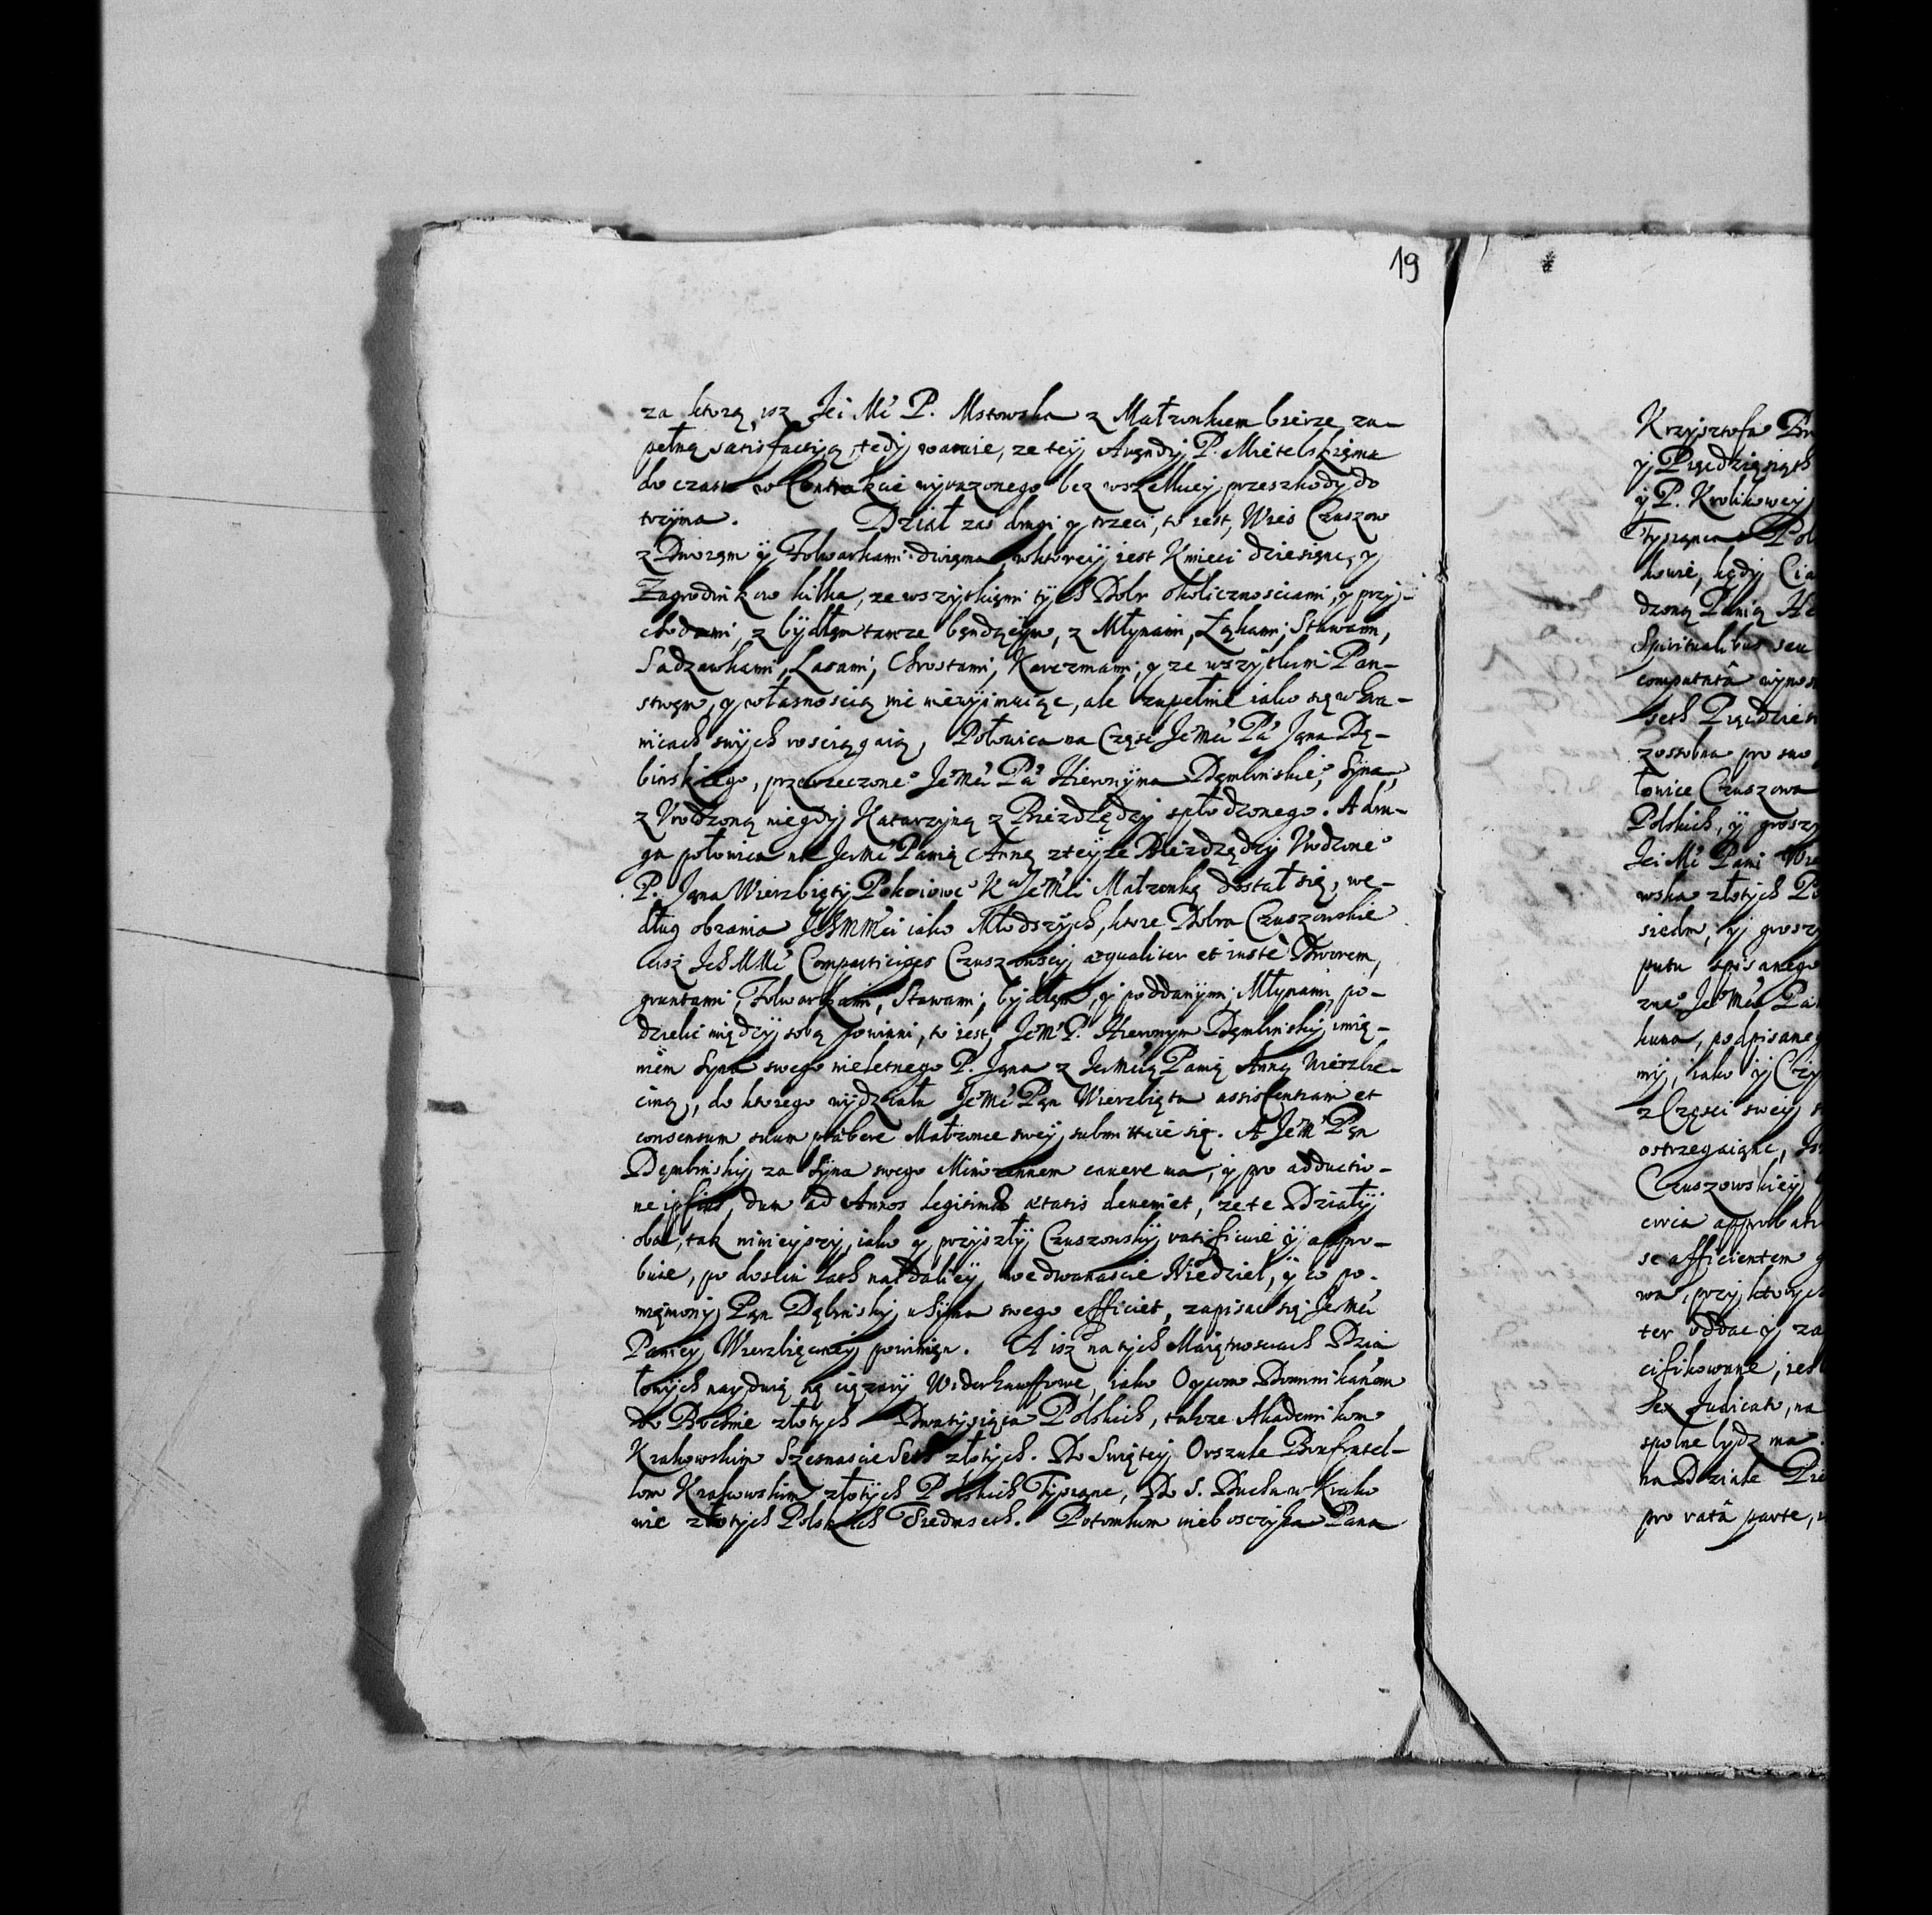 19
za ktorą isz Jei Mć P. Mstowska z Małzonkiem bierze zu-
pełną satisfactią, tedy waruie, ze tey Arędy P. Mietelskiemu
do czasu w Contrakcie wyrazonego bez wszelkiey przeszkody do
trzyma. Dział zas drugi y trzeci, to iest, Wies Czuszow
z Dworem y Folwarkami dwiema, wktorey iest Kmieci dziesięć, y
Zagrodnikow kilka, ze wszystkiemi tych Dobr okolicznosciami, y przy-
chodami, z bydłem tamze będącym, z Młynami, Łąkami, Stawami,
Sadzawkami, Lasami, Chrostami, Karczmami, y ze wszystkimi Pan-
stwem, y własnoscią nic niewyimuiąc, ale zupełnie iako się w Gra-
nicach swych rosciągaią, Połowica na Częsć JeMci Pa Jana Dę-
binskiego, przerzeczonego JeMci Pa Hieronyma Dembinskiego, Syna,
z Urodzoną niegdy Katarzyną z Biezdzędzy spłodzonego. A dru-
ga połowica na JeiMć Panią Annę zteyze Biezdzędzy Urodzonego
P. Jana Wierzbięty Pokoiowego K JeMci Małzonkę dostał się, we-
dług obrania IchMMci iako Młodszych, ktore Dobra Czuszowskie
cisz IchMMć Comparticipes Czuszowscy æqualiter et iustè Dworem,
gruntami, Folwarkami, Stawami, bydłem, y poddanymi, Młynami po-
dzielić między sobą powinni, to iest, JeMć P. Hieronym Dembinsky imię-
niem Syna swego nieletnego P. Jana z JeiMcią Panią Anną Wierzbię-
ciną, do ktorego wydziału JeMć Pan Wierzbięta assistentiam et
consensum suum præbere Małzonce swey submittuie się. A JeMć Pan
Dembinsky za Syna swego Minorennem cavere ma, y pro adductio-
ne ipsius, dum ad Annos legitimæ ætatis deveniet, ze te Działy
oba, tak ninieyszy, iako y przyszły Czuszowsky ratificuie y appro-
buie, po dosciu lath naydaley we dwanascie Niedziel, y to po-
mięniony Pan Dębinsky u Syna swego efficiet, zapisać się JeiMci
Paniey Wierzbięciney powinien. A isz na tych Maiętnosciach Dzia
łowych nayduią się cięzary Widerkauffowe, iako Oycom Dominikanom
do Bochnie złotych Dwatysiąca Polskich, takze Akademikom
Krakowskim Szesnascie Seth złotych. Do Swiętey Orszule Bonfratel-
lom Krakowskim złotych Polskich Tysiąc, Do S. Ducha w Krako
wie złotych Polskich Siedmseth. Potomkom nieboszczyka Pana
Krzysztofa
y Pięćdziesiąth
y P. Krolikowey
Tysiąca Pol
kowie, kędy
dzoną Panią
Spiritualibus seu
computatâ
seth Pięćdzies
zosobna pro suo
łowice Czuszowa
Polskich, y groszy
Jei Mć Pani
wska złotych
siedm, y groszy
putu spisanego
JeoMci
kuna, podpisaneg
my, iako y
z Częsci swey
ostrzegaiąc,
Czuszowskiey
circa approbati
se afficientem
wa, przy ktorych
ter oddać y za
cifikowane, iest
Sex Judicato, na
spolne bydz ma
na Dziale
pro ratâ parte,